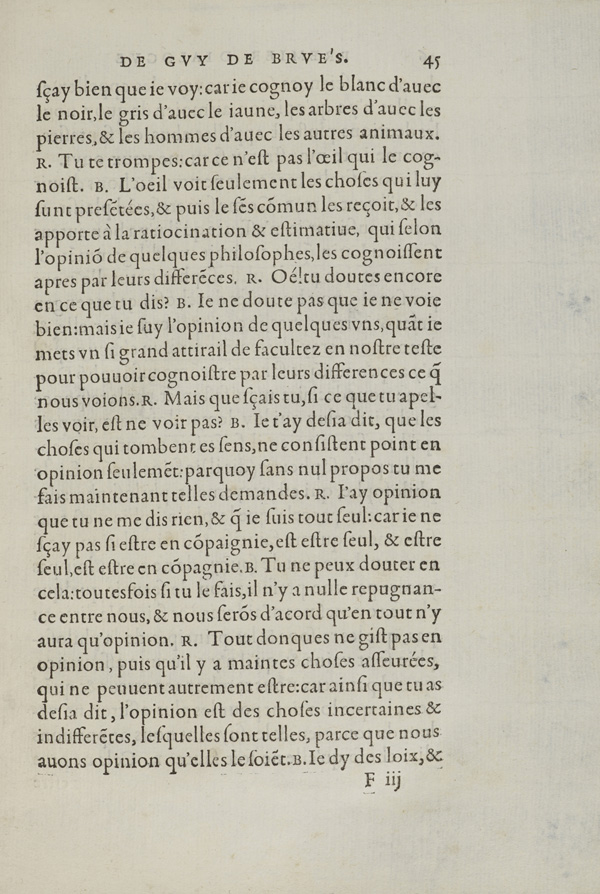 DE GVY DE BRVE'S. 45
ſçay bien que ie voy: car ie cognoy le blanc d'auec
le noir, le gris d'auec le iaune, les arbres d'auec les
pierres, & les hommes d'auec les autres animaux.
R. Tu te trompes: car ce n'eſt pas l'œil qui le cog-
noiſt. B. L'oeil voit ſeulement les choſes qui luy
ſunt preſẽtées, & puis le ſẽs cõmun les reçoit, & les
apporte à la ratiocination & eſtimatiue, qui ſelon
l'opiniõ de quelques philoſophes, les cognoiſſent
apres par leurs differẽces. R. Oé! tu doutes encore
en ce que tu dis? B. Ie ne doute pas que ie ne voie
bien: mais ie ſuy l'opinion de quelques vns, quãt ie
mets vn ſi grand attirail de facultez en noſtre teſte
pour pouuoir cognoiſtre par leurs differences ce q̃
nous voions. R. Mais que ſçais tu, ſi ce que tu apel-
les voir, eſt ne voir pas? B. Ie t'ay deſia dit, que les
choſes qui tombent es ſens, ne conſiſtent point en
opinion ſeulemẽt: parquoy ſans nul propos tu me
fais maintenant telles demandes. R. I'ay opinion
que tu ne me dis rien, & q̃ ie ſuis tout ſeul: car ie ne
ſçay pas ſi eſtre en cõpaignie, eſt eſtre ſeul, & eſtre
ſeul, eſt eſtre en cõpagnie. B. Tu ne peux douter en
cela: toutesfois ſi tu le fais, il n'y a nulle repugnan-
ce entre nous, & nous ſerõs d'acord qu'en tout n'y
aura qu'opinion. R. Tout donques ne giſt pas en
opinion, puis qu'il y a maintes choſes aſſeurées,
qui ne peuuent autrement eſtre: car ainſi que tu as
deſia dit, l'opinion eſt des choſes incertaines &
indifferẽtes, leſquelles ſont telles, parce que nous
auons opinion qu'elles le ſoiẽt. B. Ie dy des loix, &
F iij